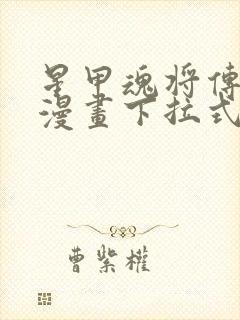 星甲魂将傳
漫畫下拉式
曹紫權